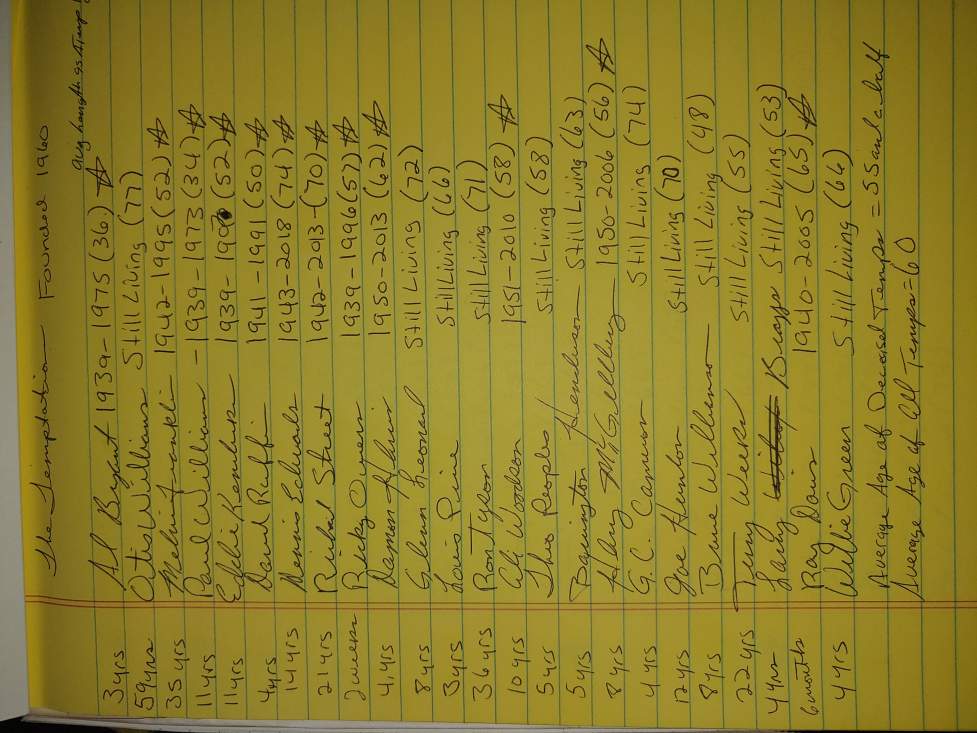 The Temptation Founded 1960
avg length as a Temp
3 yrs Al Bryant 1939-1975 (36) ☆
59 yrs Otis Williams Still Living (77)
35 yrs Melvin Franklin 1942-1995 (52) ☆
11 yrs Paul Williams - 1939-1973 (34) ☆
11 yrs Eddie Kendricks 1939-1990 (52) ☆
4 yrs David Ruffin 1941-1991 (50) ☆
14 yrs Dennis Edwards 1943-2018 (74) ☆
21 yrs Richard Street 1942-2013-(70) ☆
2 weeks Ricky Owens 1939-1996 (57) ☆
4 yrs Damon Harris 1950-2013 (62) ☆
8 yrs Glenn Leonard Still Living (72)
3 yrs Louis Price Still Living (66)
36 yrs Ron Tyson Still Living (71)
10 yrs Ali Woodson 1951-2010 (58) ☆
5 yrs Theo Peoples Still Living (58)
5 yrs Barrington Henderson - Still Living (63)
8 yrs Harry McGilberry - 1950-2006 (56) ☆
4 yrs G.C. Cameron Still Living (74)
12 yrs Joe Herndon Still Living (70)
8 yrs Bruce Williamson - Still Living (48)
22 yrs Terry Weeks Still Living (55)
4 yrs Larry Braggs Still Living (53)
6 months Ray Davis 1940-2005 (65) ☆
4 yrs Willie Green Still Living (66)
Average Age of Deceased Temps = 55 and a half
Average Age of All Temps = 60